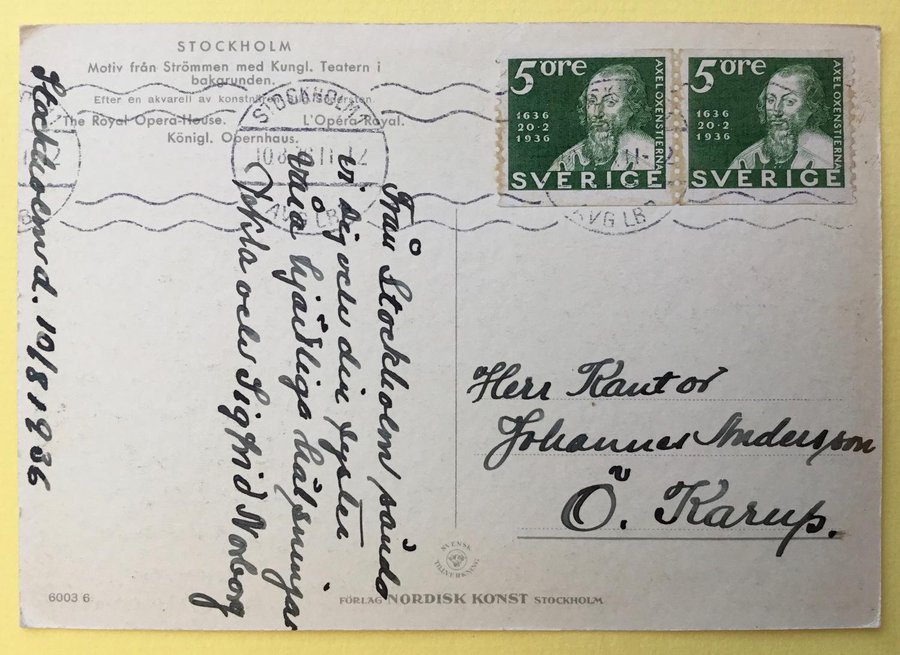 STOCKHOLM
Motiv från Strömmen med Kungl. Teatern i
bakgrunden.
Efter en akvarell av konstnären
The Royal Opera-House. L'Opéra Royal.
Königl. Opernhaus.
STOCKHOLM
AVG LBR
5 öre
1636
20·2
1936
AXEL OXENSTIERNA
SVERIGE
5 öre
1636
20·2
1936
AXEL OXENSTIERNA
SVERIGE
AVG LBR
Stockholm d. 10/8 1936
Från Stockholm sända
vi dig och din syster
våra hjärtliga hälsningar
och Sigfrid Norborg
Herr Kantor
Johannes Andersson
Ö. Karup.
SVENSK
TILLVERKNING
6003 6
FÖRLAG NORDISK KONST STOCKHOLM